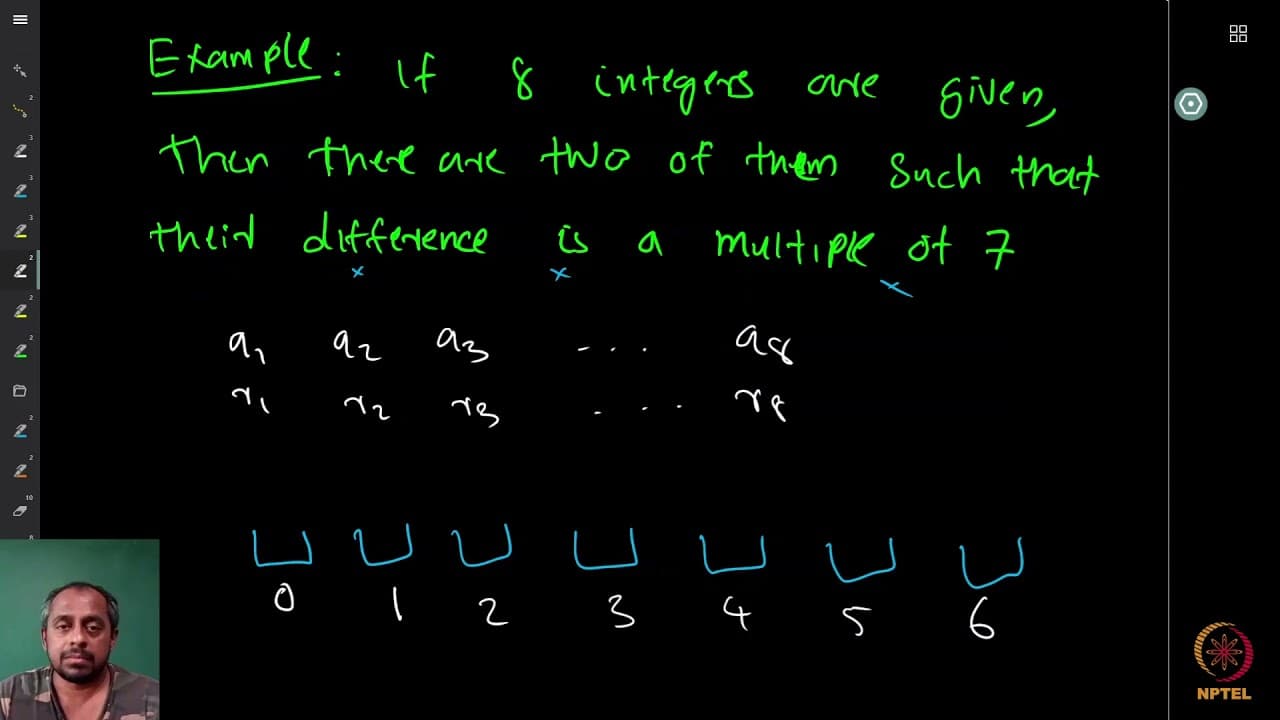 Example: If 8 integers are given,
then there are two of them such that
their difference is a multiple of 7
a1 a2 a3 ... a8
r1 r2 r3 .... r8
0 1 2 3 4 5 6
NPTEL